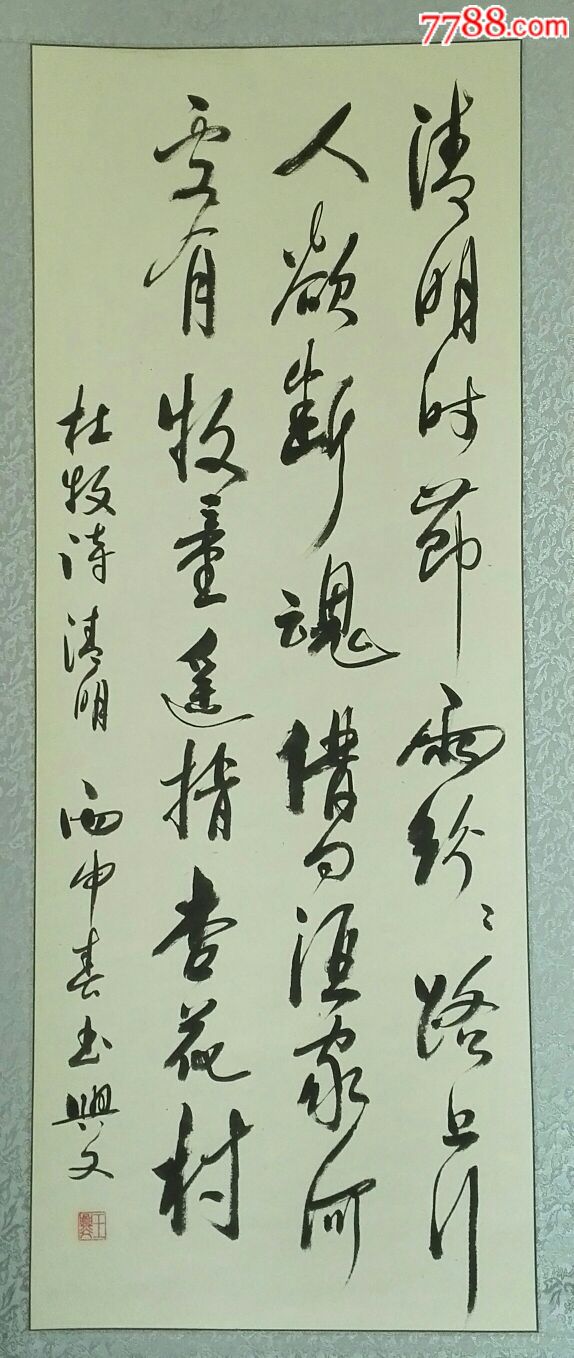 7788.com
清明时节雨纷〻路上行
人欲断魂借问酒家何
处有牧童遥指杏花村
杜牧诗清明 丙申春玉興文